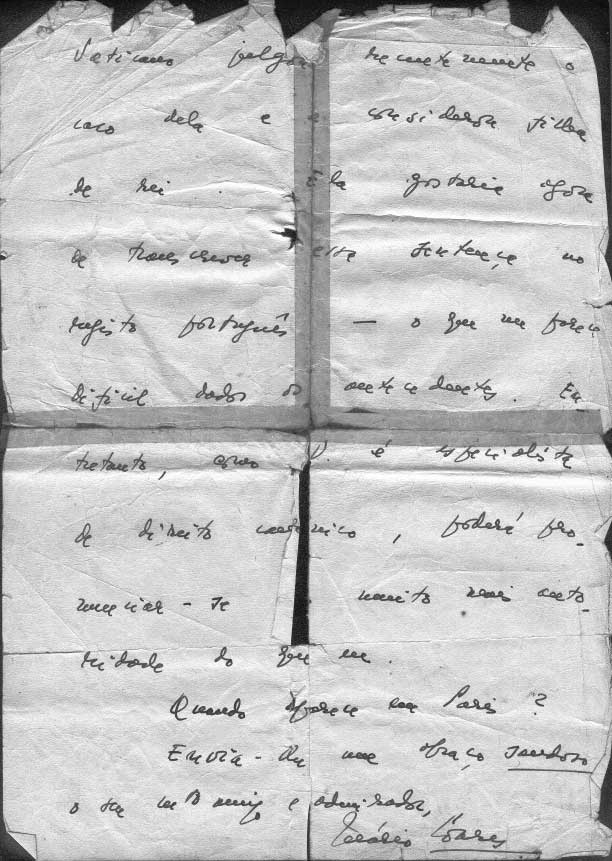 Vaticano julgou recentemente o
caso dela e a considerou filha
de rei. Ela gostaria agora
de transcrever esta sentença no
registo português — o que me parece
difícil dados os antecedentes. En-
tretanto, como V. é especialista
de direito canónico, poderá pro-
nunciar-se muito mais auto-
ridade do que eu.
Quando aparece em Paris?
Envia-lhe um abraço saudoso
o seu amigo e admirador,
Mário Soares